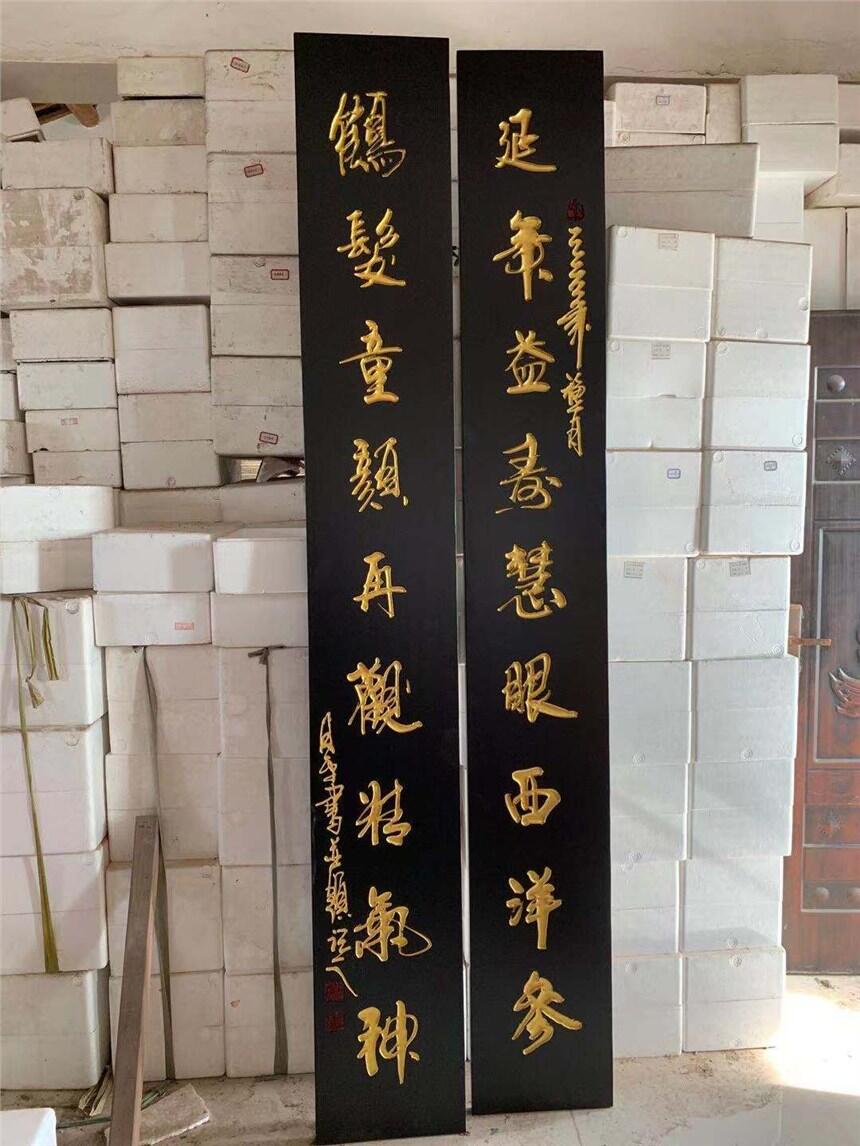 延年益寿慧眼西洋參
鶴髮童顏再觀精氣神